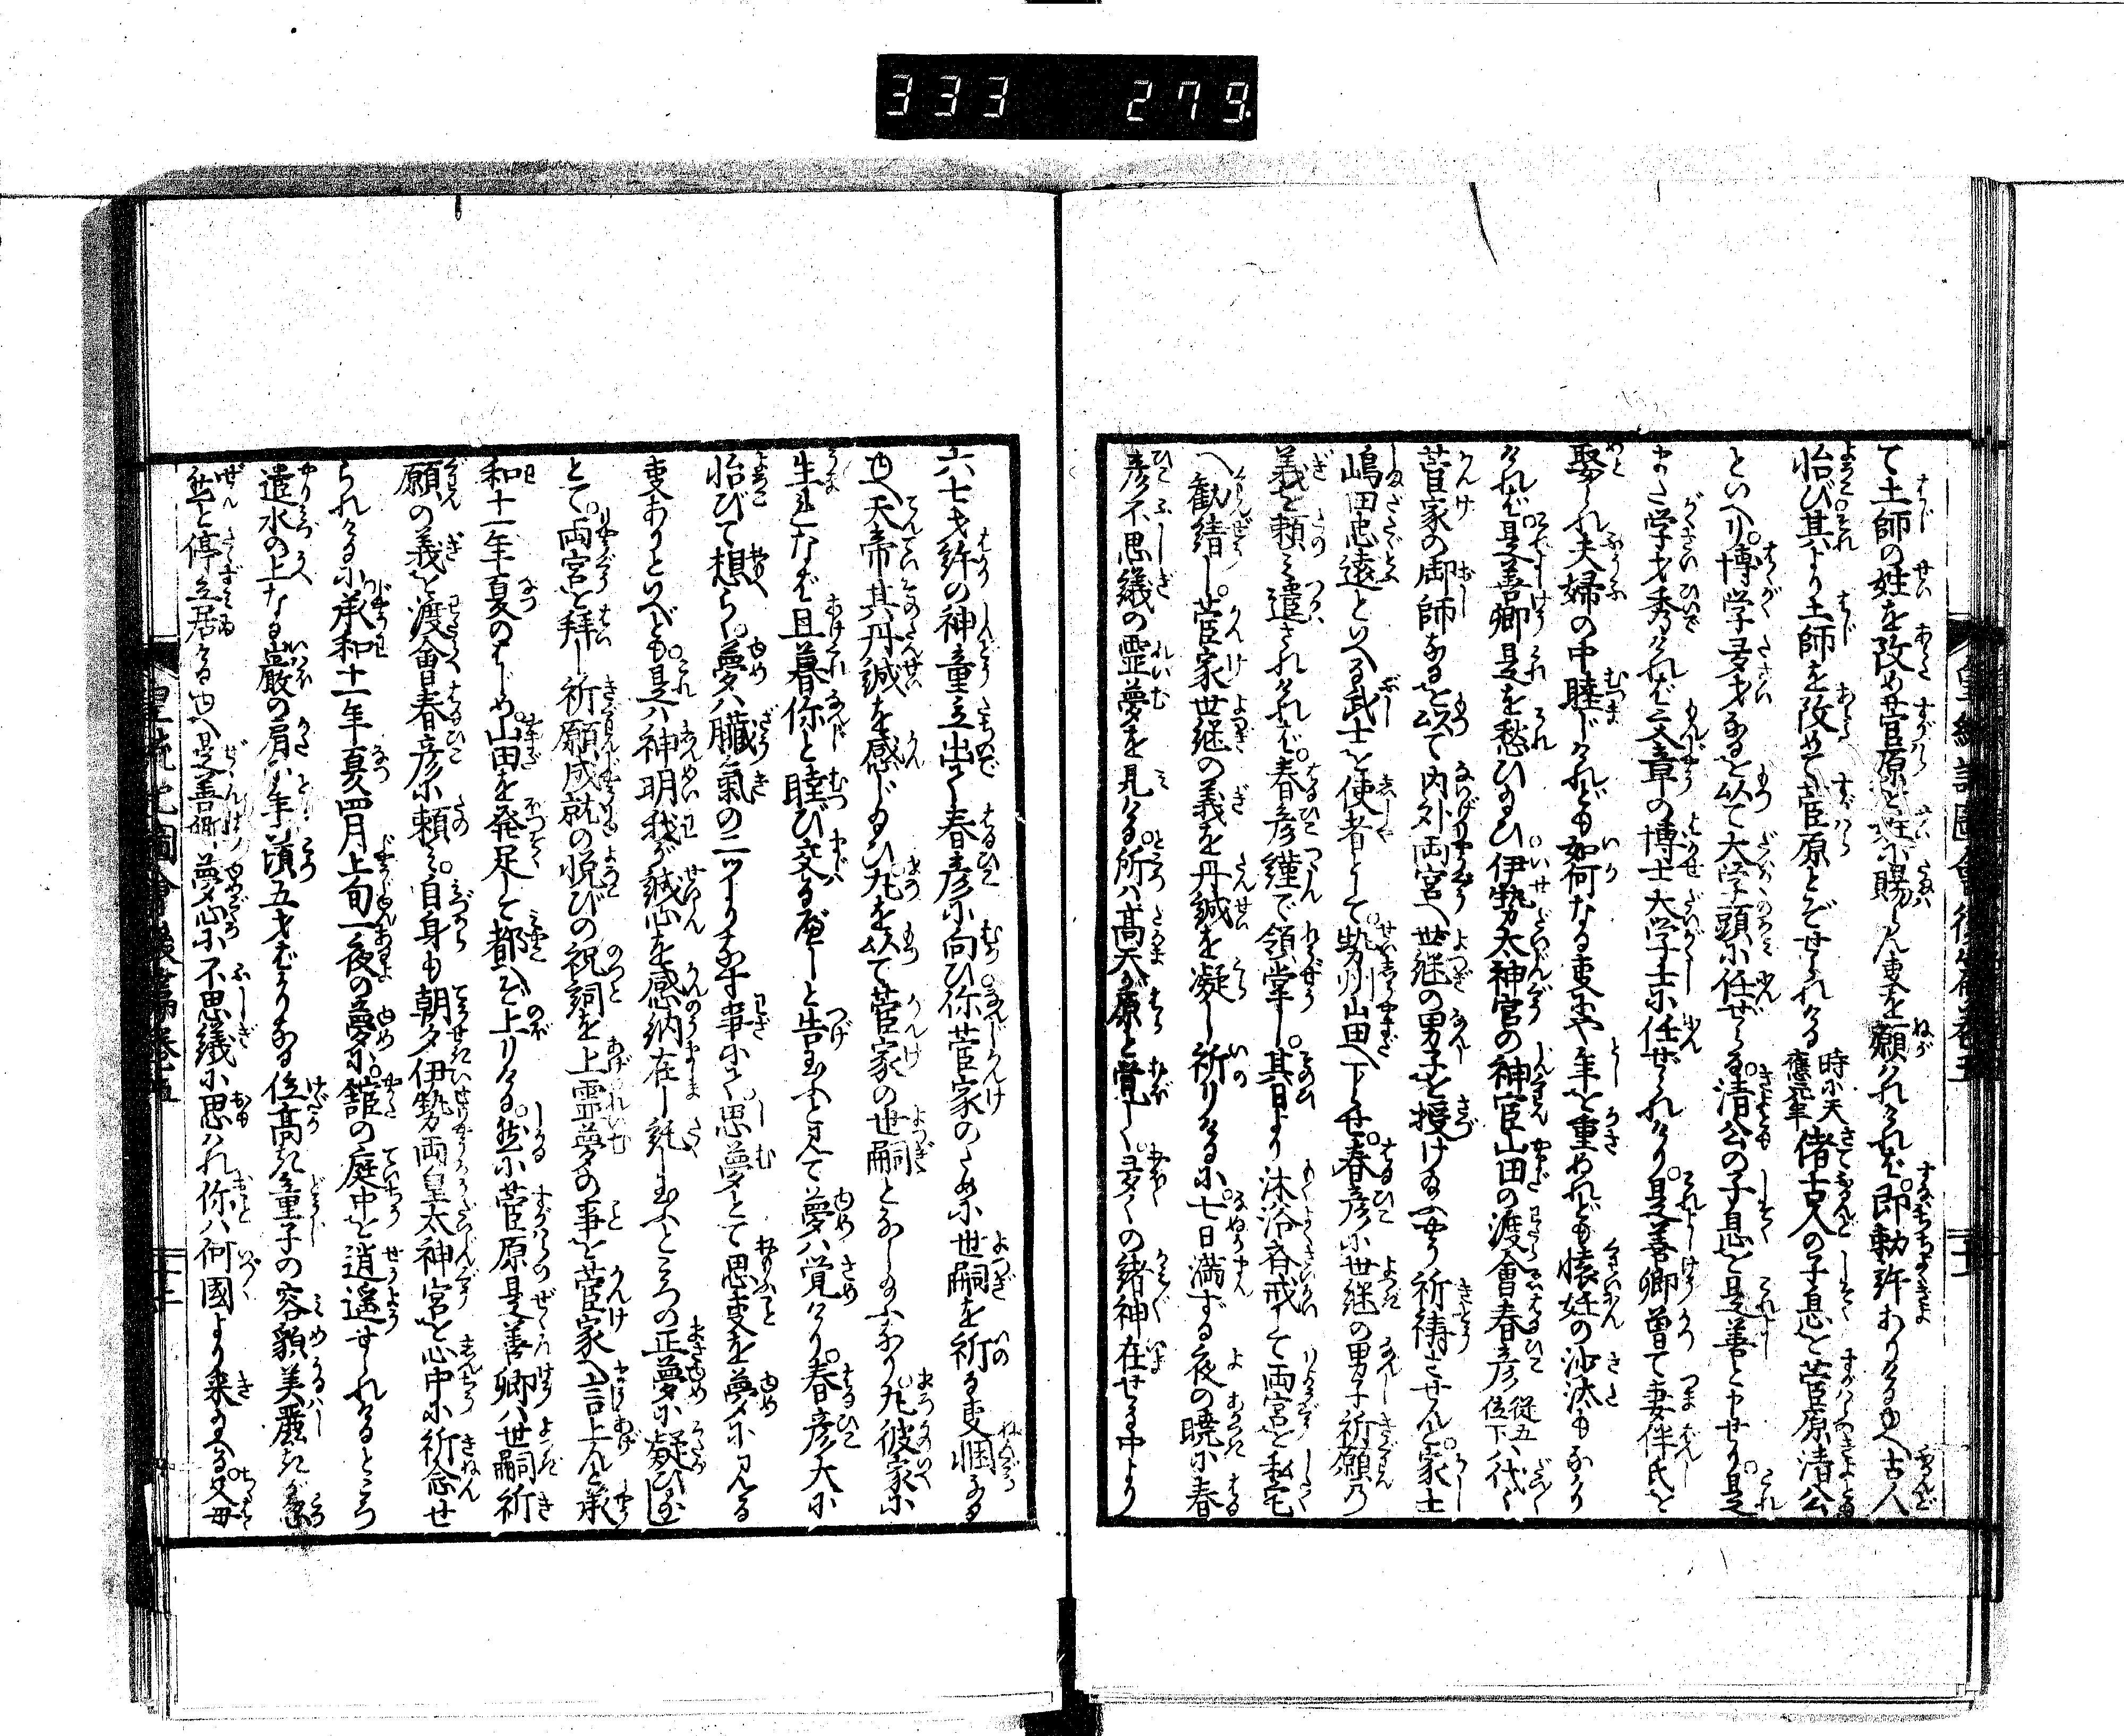 333 279
て土師の姓を改め菅原と姓に賜らん事を願はれければ即勅許ありけるゆへ古人
怡び其より土師を改めて菅原とぞせられける 時に天應元年 偖古人の子息を菅原清公
といへり博学多才なるを以て大学頭に任せらる清公の子息を是善とやせり是
また学才秀ければ文章の博士大学士に任ぜられけり是善卿曽て妻伴氏を
娶られ夫婦の中睦じけれども如何なる事にや年を重ぬれども懐妊の沙汰もなかり
ければ是善卿是を愁ひ給ひ伊勢太神宮の神官山田の渡會春彦 従五位下 八代々
菅家の御師なるを以て内外両宮へ世継の男子を授け給へやう祈祷させんと家士
嶋田忠遠といへる武士を使者として勢州山田へ下らせ春彦に世継の男子祈願乃
義を頼み遣されければ春彦謹で領掌し其日より沐浴斎戒して両宮と私宅
へ勧請し菅家世継の義を丹誠を凝し祈りけるに七日満ずる夜の暁に春
彦不思議の霊夢を見ける所は高天が原と覚しく多くの諸神在せる中より
六七才許の神童立出て春彦に向ひ你菅家のために世嗣を祈る事悃なる
ゆへ天帝其丹誠を感じ給ひ丸を以て菅家の世嗣となしめ給ふなり丸彼家に
生れなば旦暮你と睦び交るべしと告玉ふと見て夢は覚けり春彦大に
怡びて想らく夢は臓氣の二ツよりなす事にて思夢とて思事を夢に見る
事ありといへども是は神明我が誠心を感納在し託し玉ふところの正夢に疑ひなし
とて両宮を拝し祈願成就の悦びの祝詞を上霊夢の事を菅家へ言上せんと承
和十一年夏のはじめ山田を発足して都へぞ上りける然に菅原是善卿は世嗣祈
願の義を渡會春彦に頼み自身も朝夕伊勢両皇太神宮を心中に祈念せ
られけるに承和十一年夏四月上旬一夜の夢に舘の庭中を逍遥せられけるところ
遣水の上なる巌の肩に年頃五才ばかりなる位高き童子の容貌美麗きが
然と停立居けるゆへ是善卿夢心に不思議に思はれ你は何國より来り給へる父母
皇統記圖會後編巻五